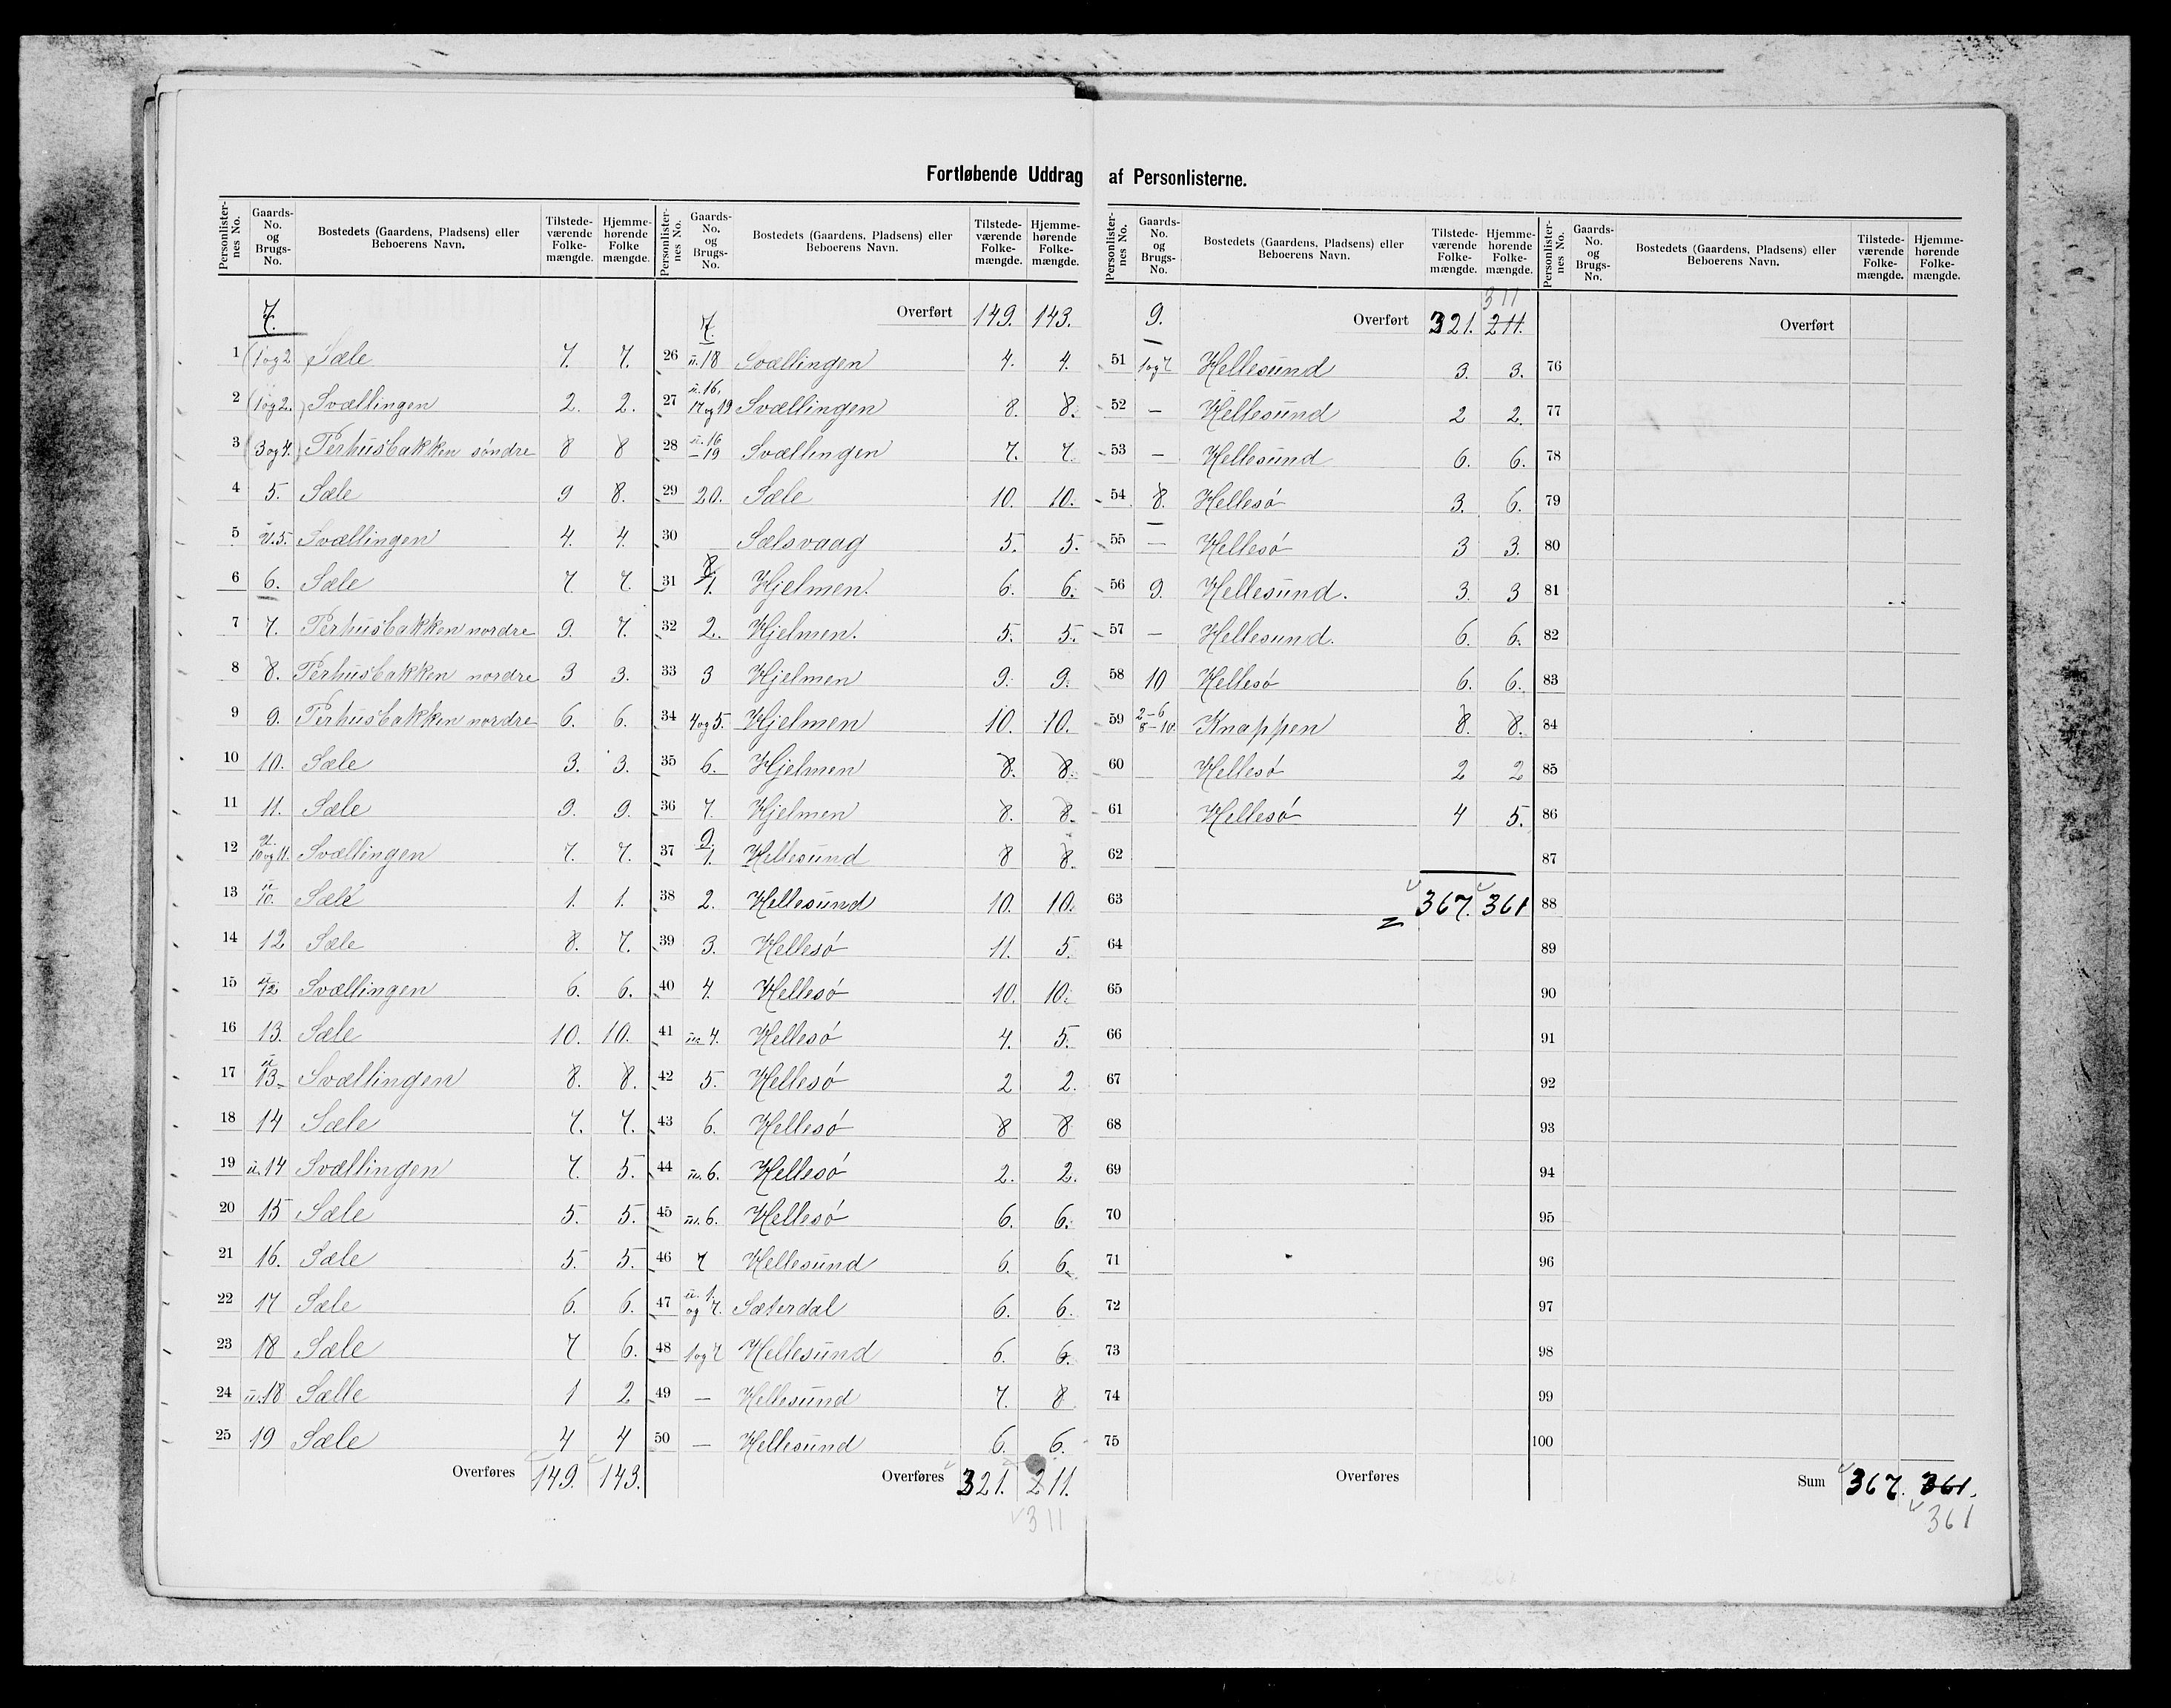 Fortløbende Uddrag af Personlisterne.
Personlister-nes No. | Gaards-No. og Brugs-No. | Bostedets (Gaardens, Pladsens) eller Beboerens Navn. | Tilstede-værende Folke-mængde. | Hjemme-hørende Folke mængde.
7.
1 (1og2 Sæle 7. 7.
2 (1og2.) Svællingen 2. 2.
3 (3og4.) Perhusbakken søndre 8 8
4 5. Sæle 9 8.
5 u.5. Svællingen 4. 4.
6 6. Sæle 7 7.
7 7. Perhusbakken nordre 9. 7.
8 8. Perhusbakken nordre 3 3.
9 9. Perhusbakken nordre 6. 6.
10 10. Sæle 3. 3.
11 11. Sæle 9. 9.
12 u. 10og11. Svællingen 7. 7.
13 u 10. Sæle 1. 1.
14 12 Sæle 8. 7.
15 u 12 Svællingen 6. 6.
16 13. Sæle 10. 10.
17 u 13. Svællingen 8. 8.
18 14 Sæle 7. 7.
19 u.14 Svællingen 7. 5.
20 15 Sæle 5. 5.
21 16. Sæle 5. 5.
22 17 Sæle 6. 6.
23 18 Sæle 7 6.
24 u.18 Sælle 1 2
25 19 Sæle 4 4
Overføres 149. 143.
Personlister-nes No. | Gaards-No. og Brugs-No. | Bostedets (Gaardens, Pladsens) eller Beboerens Navn. | Tilstede-værende Folke-mængde. | Hjemme-hørende Folke-mængde.
7. Overført 149. 143.
26 u.18 Svællingen 4. 4.
27 u.16, 17og19 Svællingen 8. 8.
28 u.16 – 19 Svællingen 7. 7.
29 20. Sæle 10. 10.
30 Sælsvaag 5. 5.
8.
31 1. Hjelmen. 6. 6.
32 2. Hjelmen. 5. 5.
33 3 Hjelmen 9. 9.
34 4og5. Hjelmen 10. 10.
35 6. Hjelmen 8. 8.
36 7. Hjelmen 8. 8.
9.
37 1. Hellesund 8 8.
38 2. Hellesund 10. 10.
39 3. Hellesø 11. 5.
40 4. Hellesø 10. 10.
41 u. 4. Hellesø 4. 5.
42 5. Hellesø 2 2.
43 6. Hellesø 8 8
44 u. 6. Hellesø 2. 2.
45 u. 6. Hellesø 6. 6.
46 7 Hellesund 6. 6.
47 u. 1. og 7. Sæterdal 6. 6.
48 1og7 Hellesund 6. 6.
49 — Hellesund 7. 8
50 — Hellesund 6. 6.
Overføres 321. 211.
311
Personlister-nes No. | Gaards-No. og Brugs-No. | Bostedets (Gaardens, Pladsens) eller Beboerens Navn. | Tilstede-værende Folke-mængde. | Hjemme-hørende Folke-mængde.
311
9. Overført 321. 211.
51 1og7 Hellesund 3. 3.
52 — Hellesund 2 2.
53 — Hellesund 6. 6.
54 8. Hellesø 3. 6.
55 — Hellesø 3 3.
56 9. Hellesund. 3. 3
57 — Hellesund. 6. 6.
58 10 Hellesø 6. 6.
59 2–6 8–10. Knappen 8. 8.
60 Hellesø 2 2
61 Hellesø 4 5.
62
63 367. 361
64
65
66
67
68
69
70
71
72
73
74
75
Overføres
Personlister-nes No. | Gaards-No. og Brugs-No. | Bostedets (Gaardens, Pladsens) eller Beboerens Navn. | Tilstede-værende Folke-mængde. | Hjemme-hørende Folke-mængde.
Overført
76
77
78
79
80
81
82
83
84
85
86
87
88
89
90
91
92
93
94
95
96
97
98
99
100
Sum 367. 361.
361